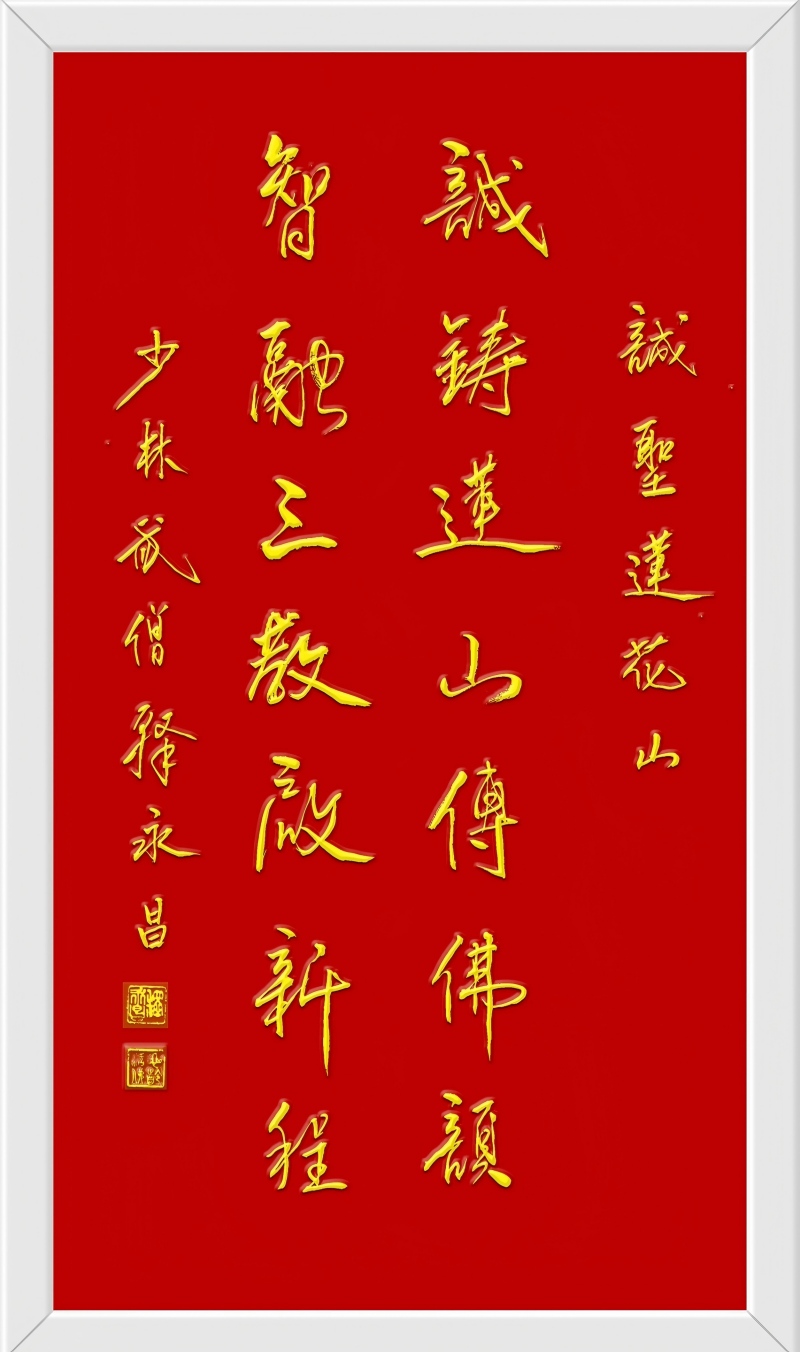 誠聖蓮花山
誠鑄蓮山傳佛韻
智融三教啟新程
少林武僧釋永昌